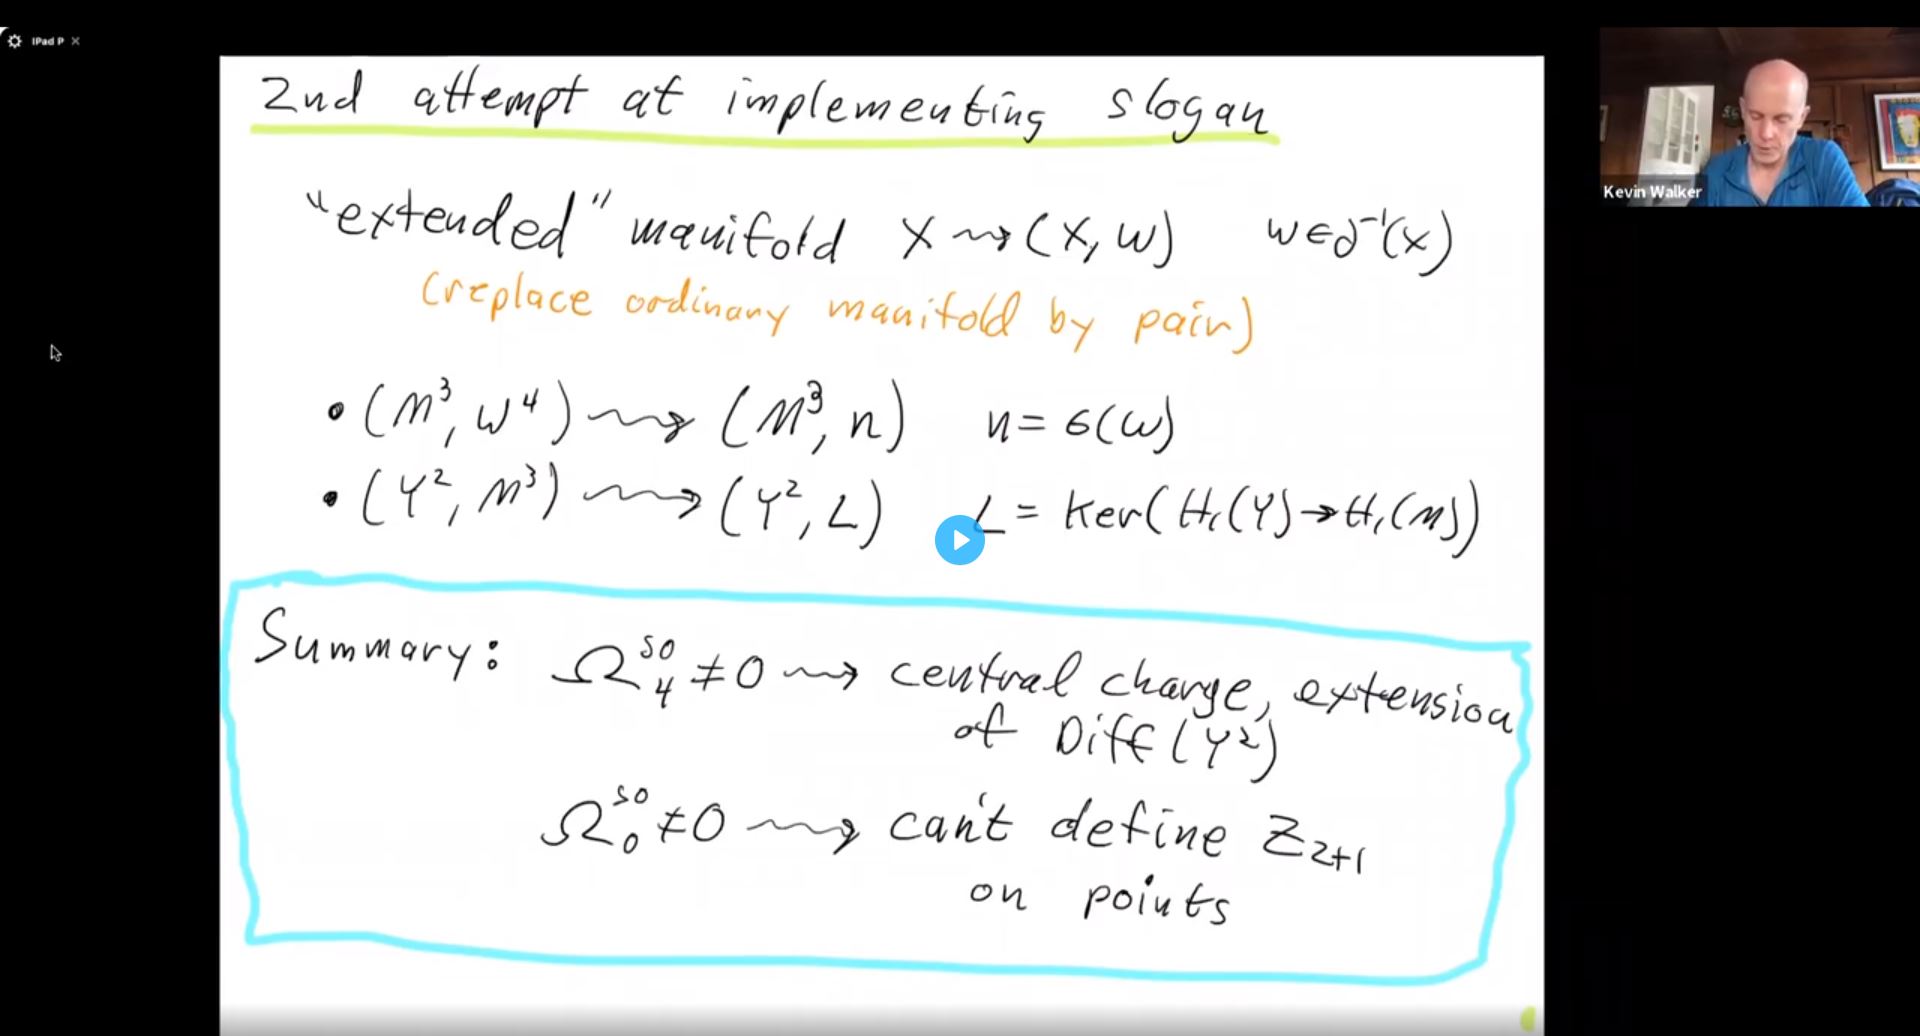 IPad P ×
2nd attempt at implementing slogan
"extended" manifold X ⇝ (X, W) W∈∂⁻¹(X)
(replace ordinary manifold by pair)
• (M³, W⁴) ⇝ (M³, n) n = σ(W)
• (Y², M³) ⇝ (Y², L) L = Ker(H₁(Y)→H₁(M))
Summary: Ω₄^SO ≠ 0 ⇝ central charge, extension
of Diff(Y²)
Ω₀^SO ≠ 0 ⇝ can't define Z₂₊₁
on points
Kevin Walker